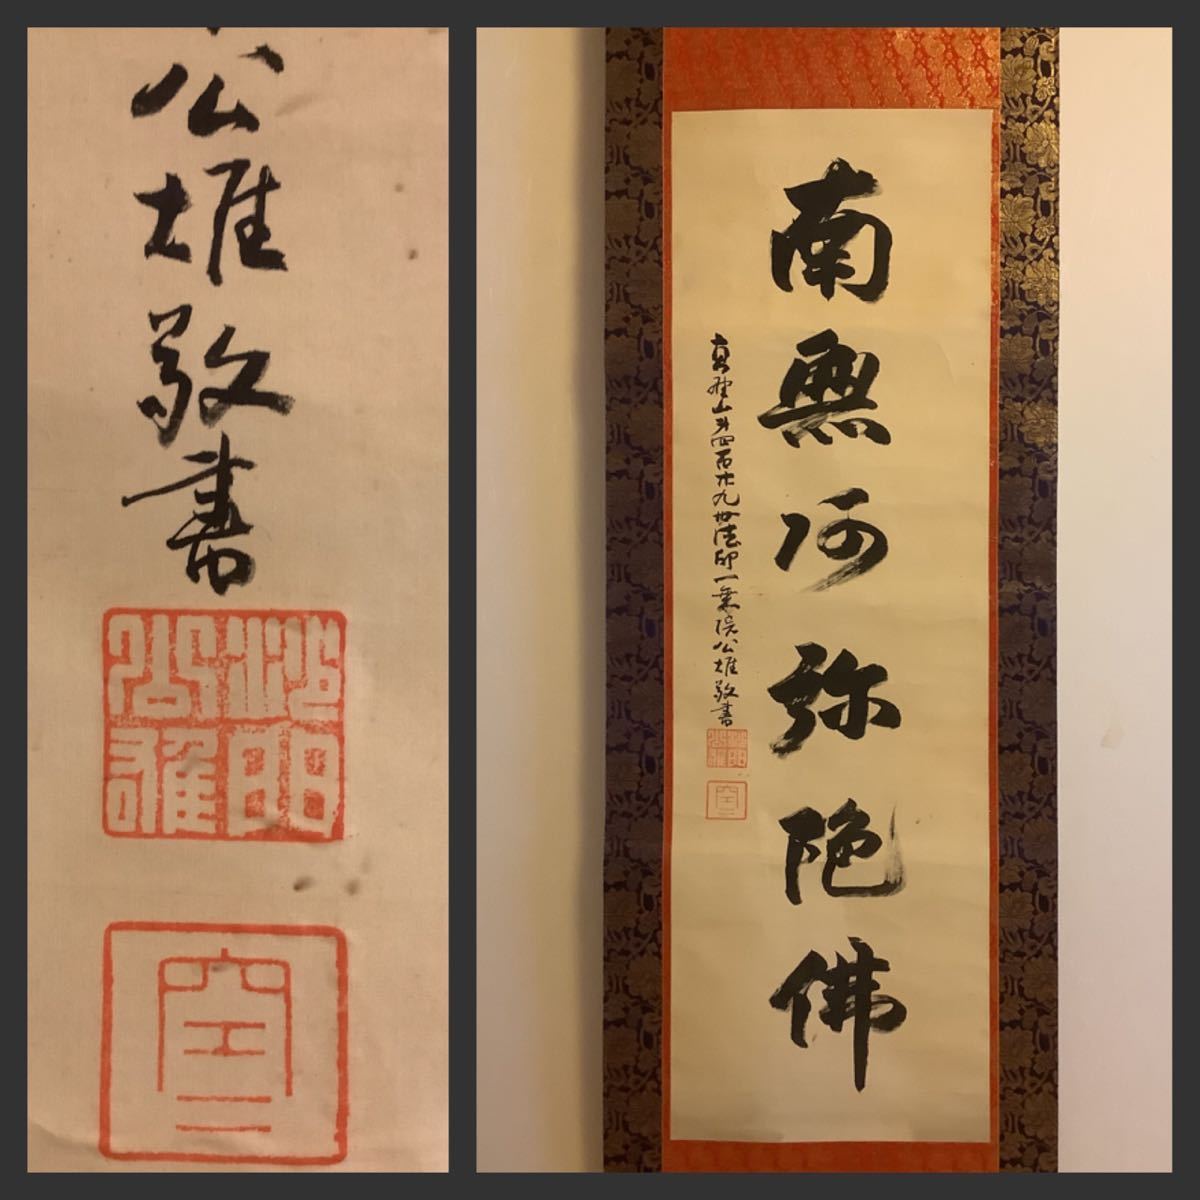 公雄敬書
南無阿弥陀佛
高野山第四百六十九世法印一乗院公雄敬書
空